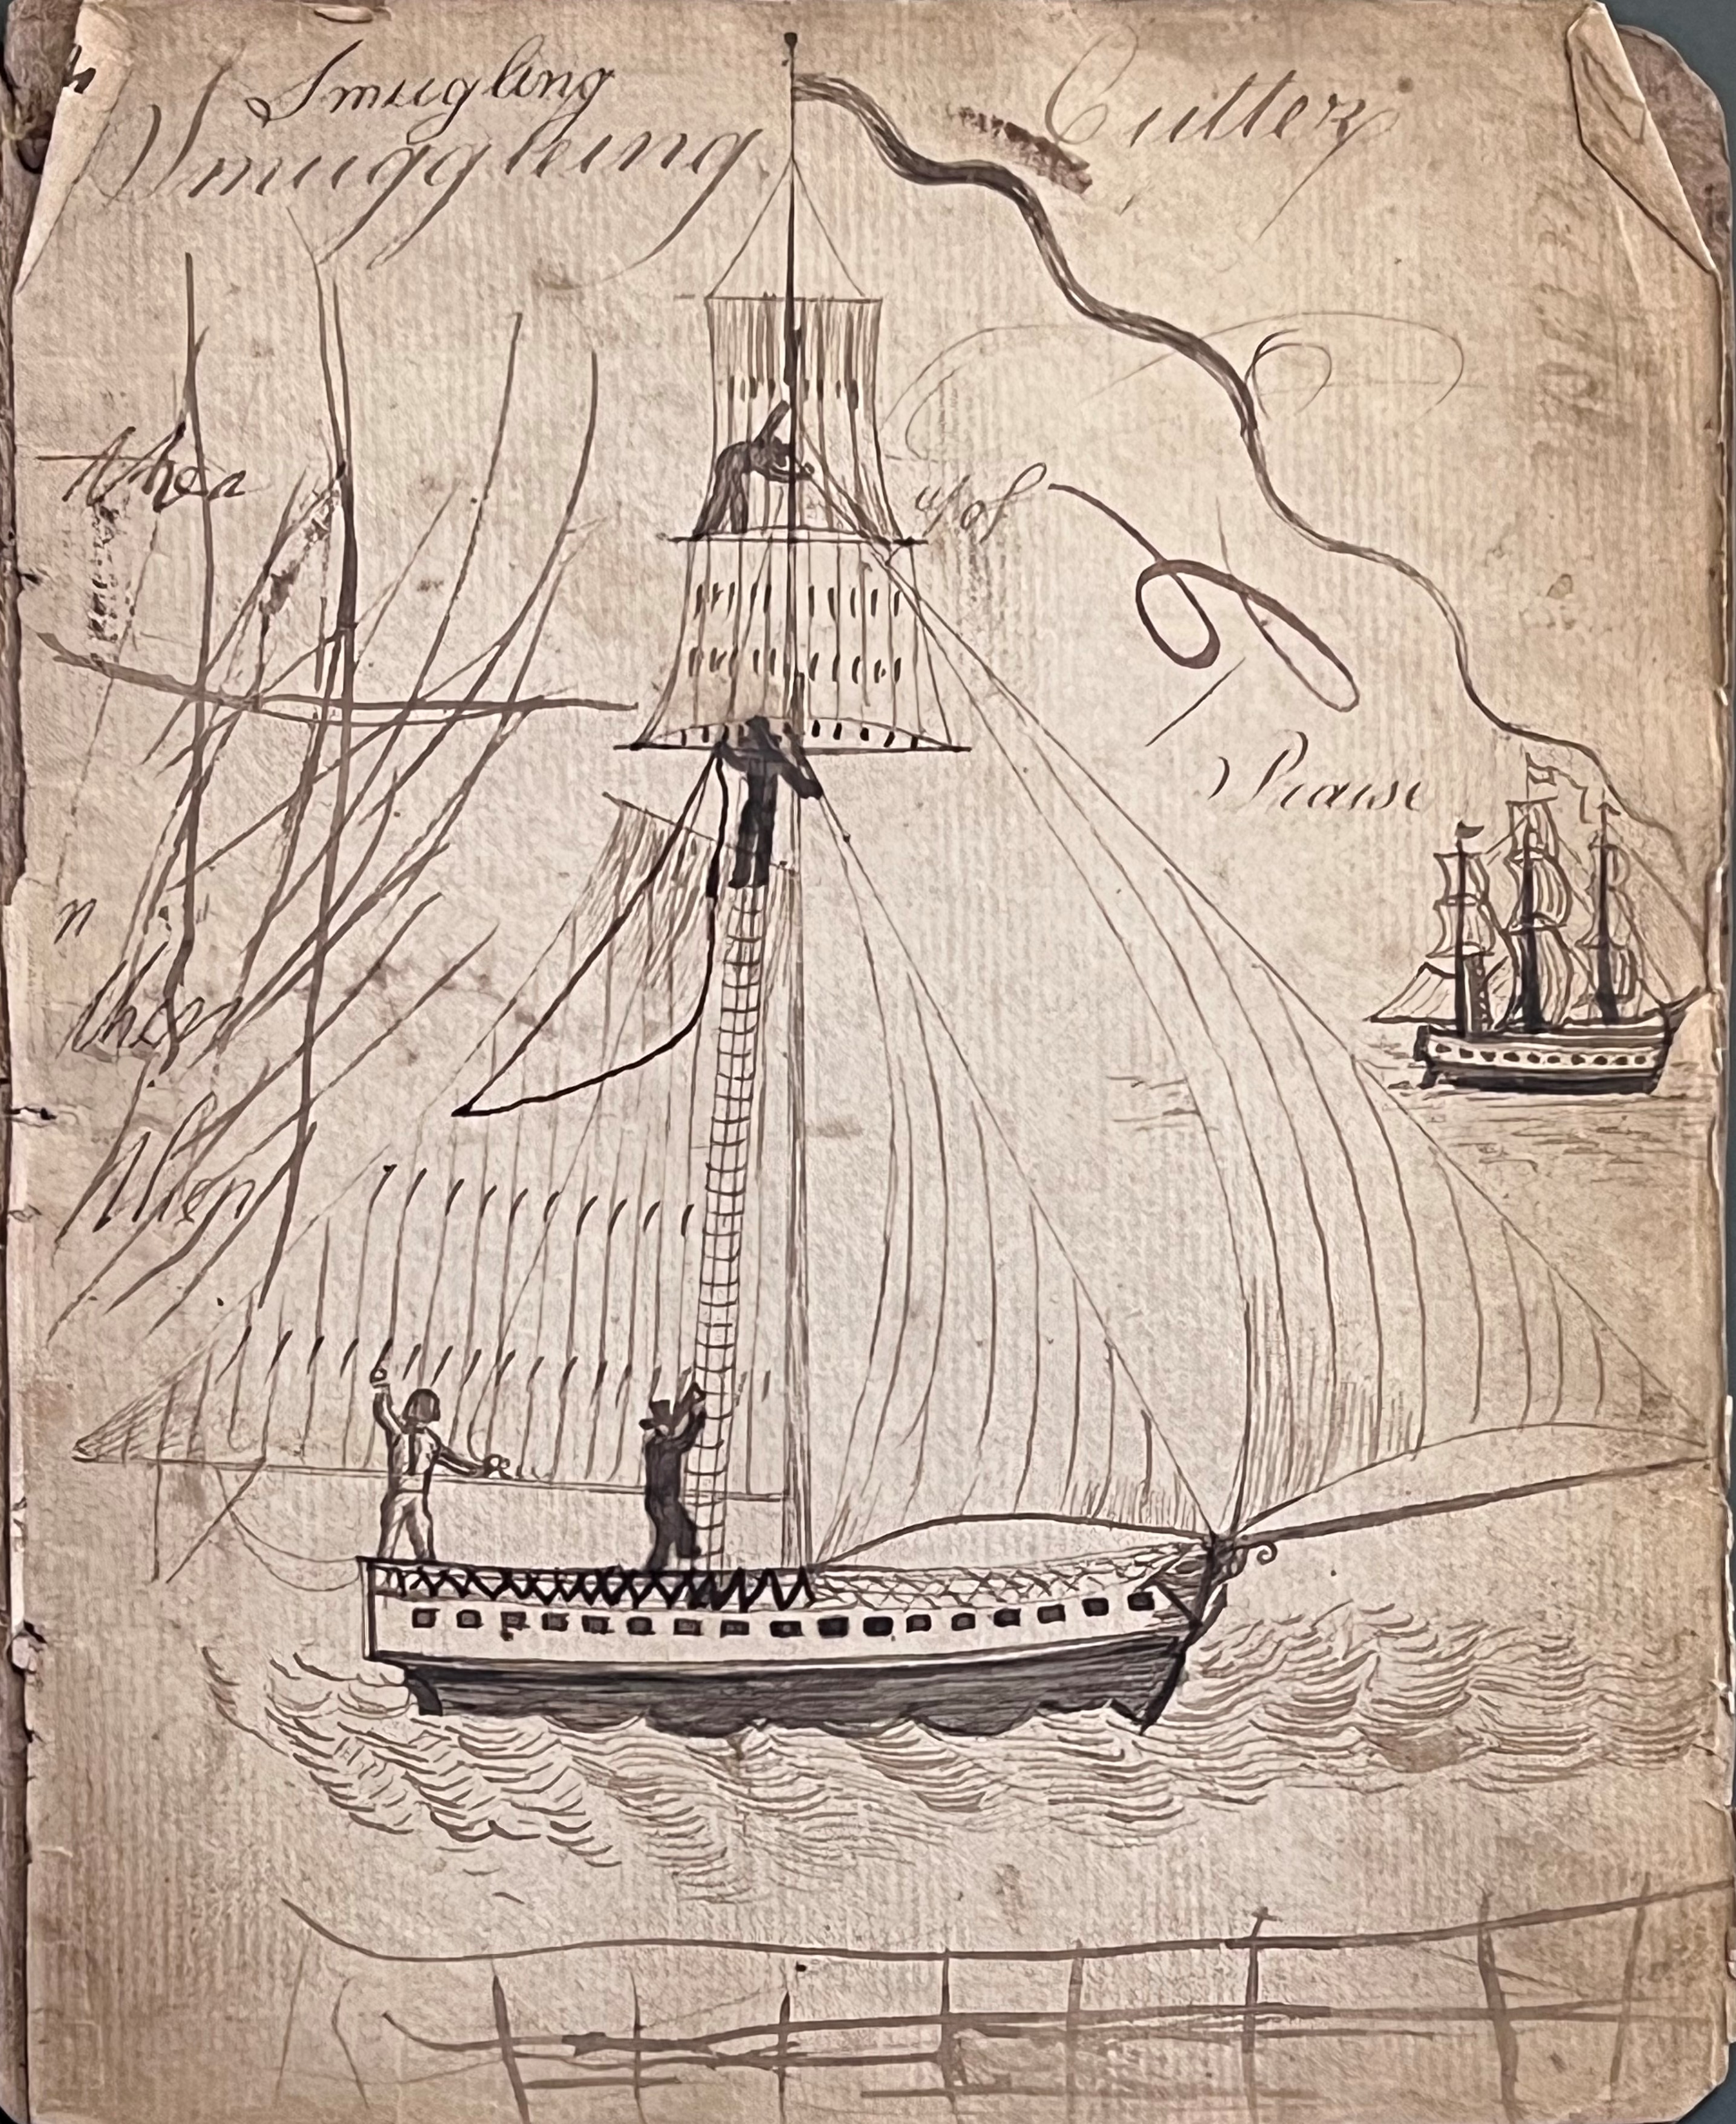 Smugling
Smuggleing Cutter
When
of
Praise
n
then
When